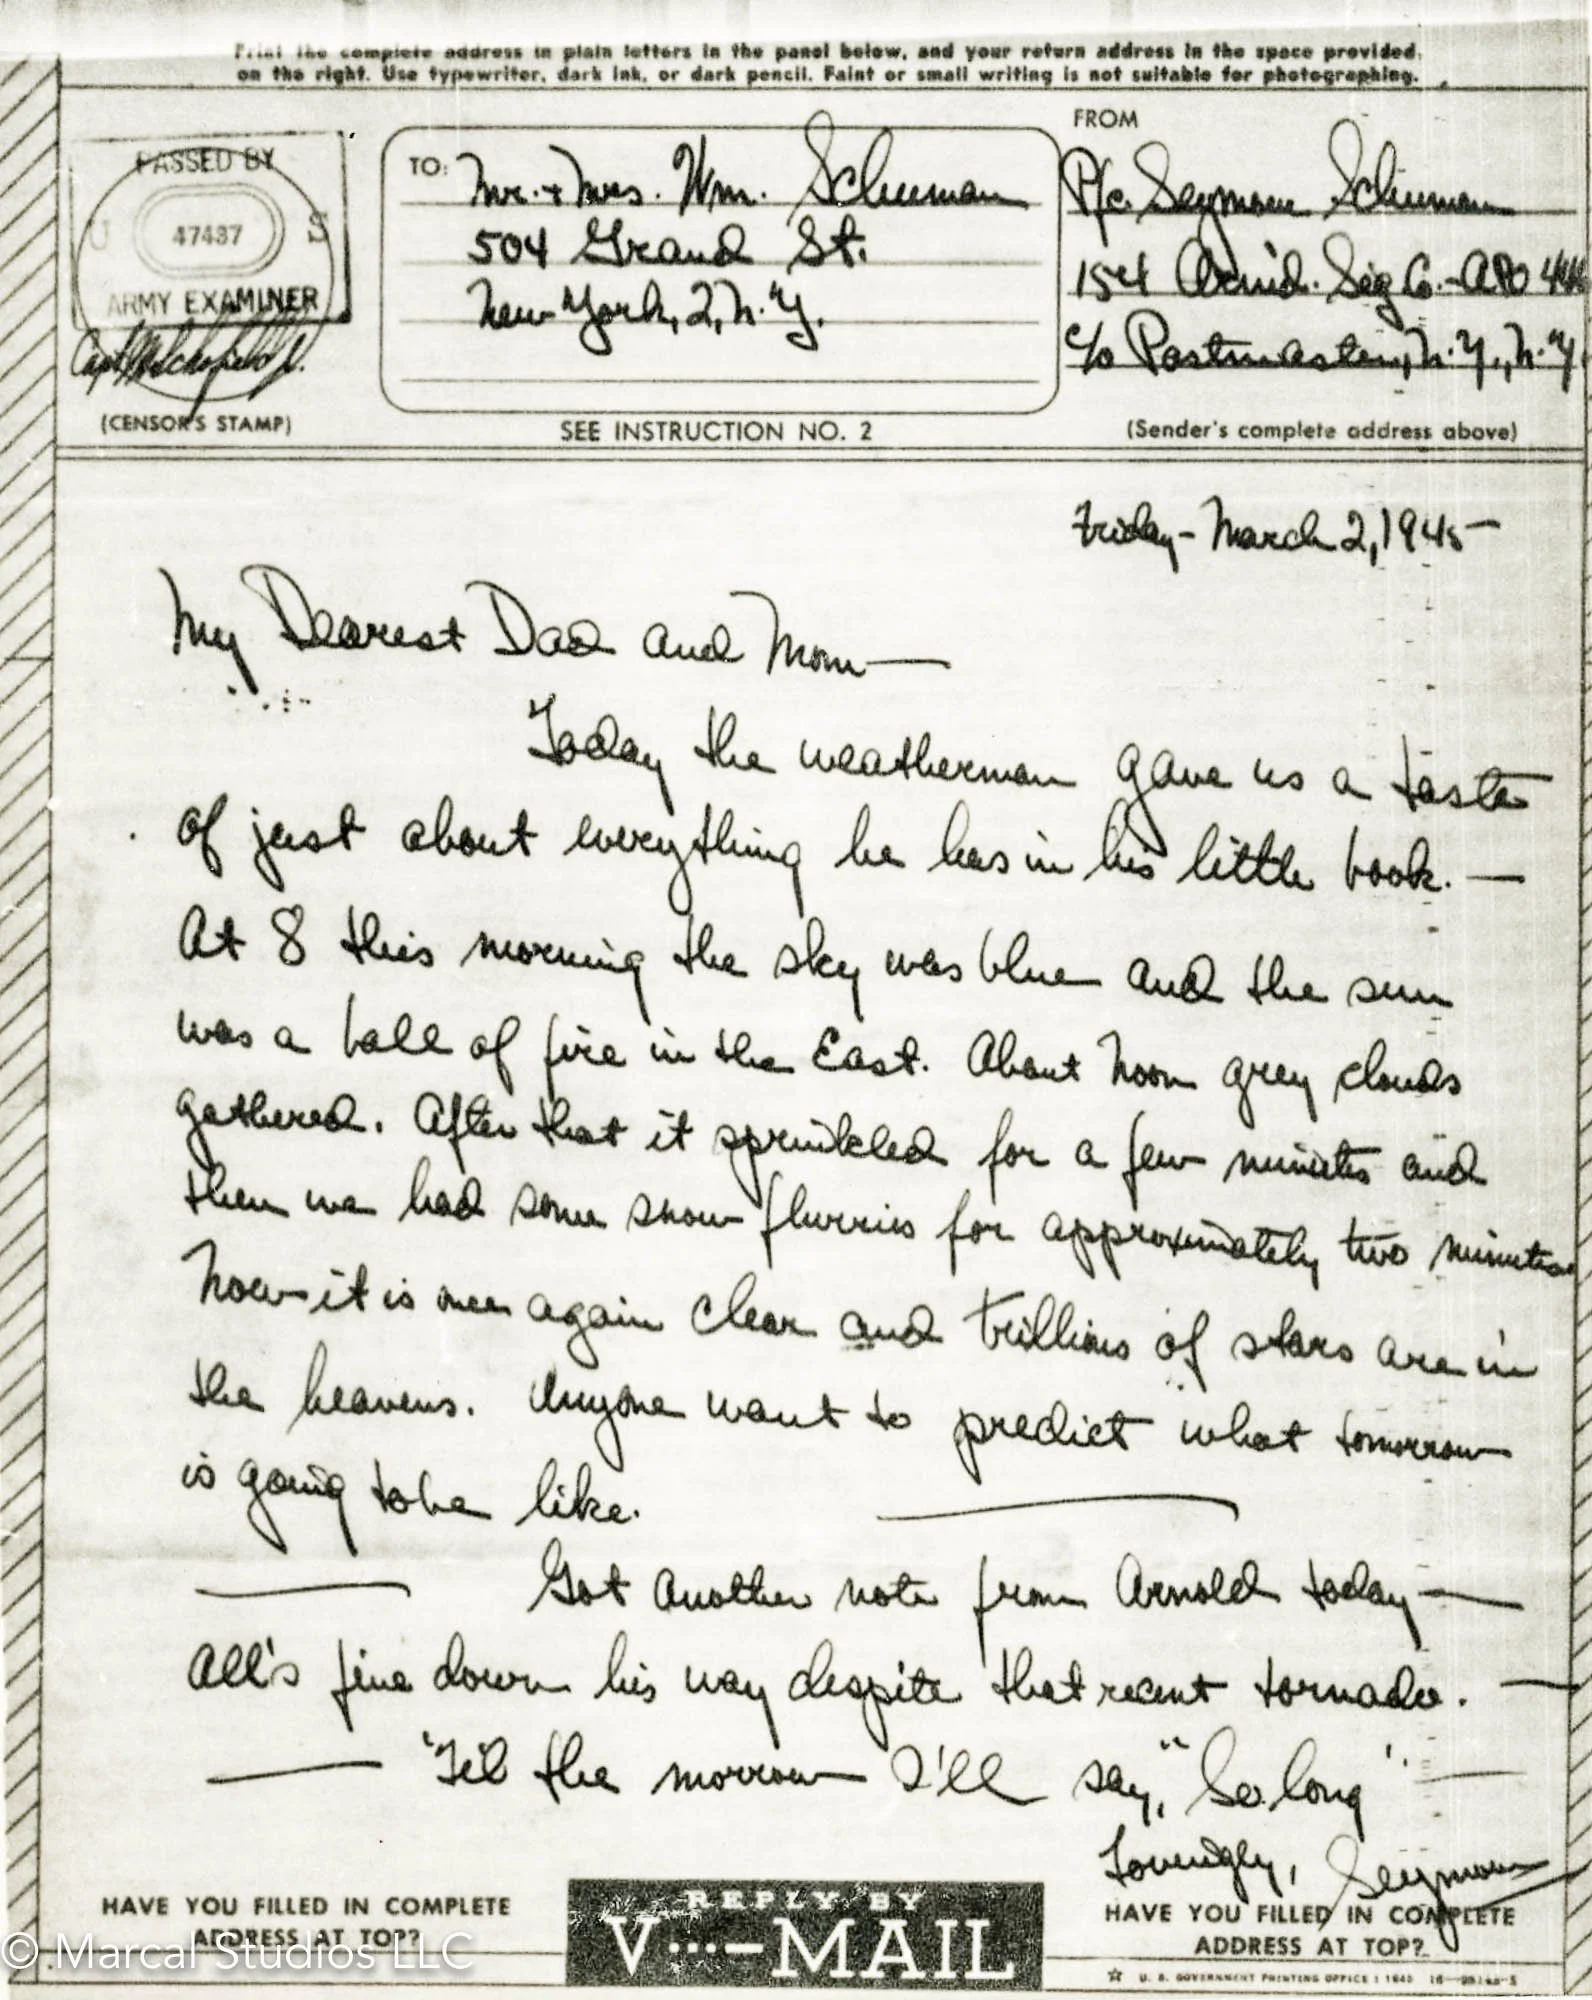 Print the complete address in plain letters in the panel below, and your return address in the space provided
on the right. Use typewriter, dark ink, or dark pencil. Faint or small writing is not suitable for photographing.
PASSED BY
U S
47437
ARMY EXAMINER
Capt
(CENSOR'S STAMP)
TO: Mr. + Mrs. Wm. Schuman
504 Grand St.
New York, 2, N.Y.
SEE INSTRUCTION NO. 2
FROM
Pfc. Seymour Schuman
154 Armd. Sig Co. - APO
c/o Postmaster, N.Y., N.Y.
(Sender's complete address above)
Friday - March 2, 1945 -
My Dearest Dad and Mom —
Today the weatherman gave us a taste
of just about everything he has in his little book. —
At 8 this morning the sky was blue and the sun
was a ball of fire in the East. About Noon grey clouds
gathered. After that it sprinkled for a few minutes and
then we had some snow flurries for approximately two minutes.
Now it is once again clear and trillions of stars are in
the heavens. Anyone want to predict what tomorrow
is going to be like. —
— Got another note from Arnold today —
All's fine down his way despite that recent tornado. —
— 'Til the morrow I'll say, "So long" —
Lovingly, Seymour
HAVE YOU FILLED IN COMPLETE
ADDRESS AT TOP?
REPLY BY
V···—MAIL
HAVE YOU FILLED IN COMPLETE
ADDRESS AT TOP?
☆ U. S. GOVERNMENT PRINTING OFFICE : 1943
© Marcal Studios LLC